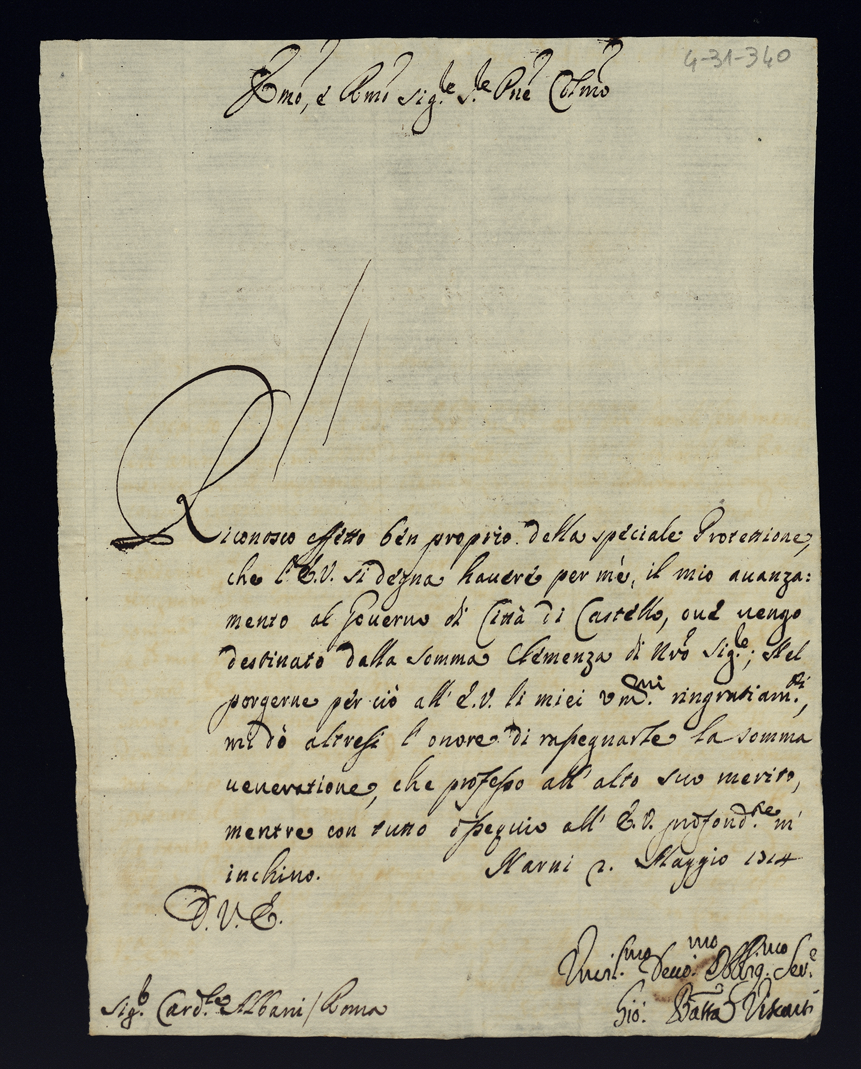 4-31-340
Emo, e Rmo Sig.re S.re Pne Colmo
Riconosco effetto ben proprio della speciale Protettione,
che l'E.V. si degna havere per me, il mio auanza:
mento al Governo di Città di Castello, oue uengo
destinato dalla somma Clemenza di Nro Sig.re; Nel
porgerne per ciò all' E.V. li miei um.mi ringratiam.ti,
mi dò altresi l'onore di rassegnarle la somma
ueneratione, che professo all' alto suo merito,
mentre con tutto ossequio all' E.V. profond.te m'
inchino. Narni 2. Maggio 1714
D.V.E.
Umil.mo Deuo.mo Obblig.mo Ser.e
Gio: Batta Visconti
Sig.r Card.le Albani / Roma